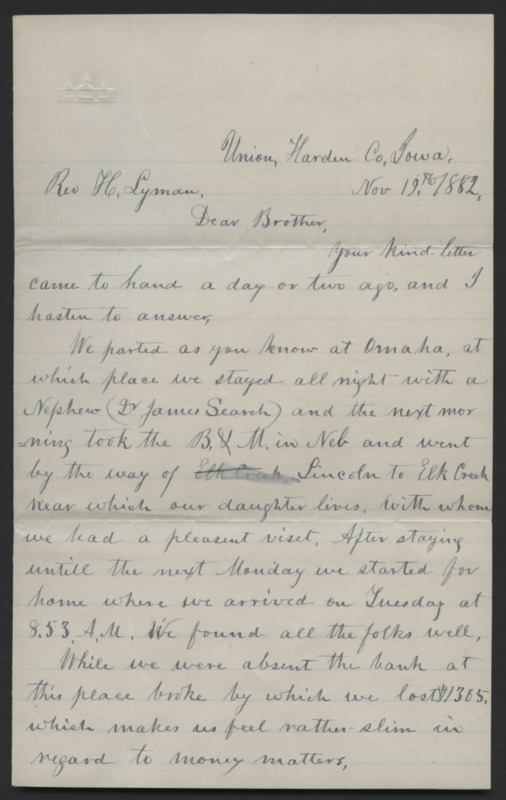 Union, Harden Co, Iowa.
Rev H. Lyman, Nov 19.th/1882,
Dear Brother,
Your kind letter
came to hand a day or two ago, and I
hasten to answer,
We parted as you know at Omaha, at
which place we stayed all night with a
Nephew (Dr James Search) and the next mor
=ning took the B, & M. in Neb and went
by the way of Elk Creek Lincoln to Elk Creek
near which our daughter lives. With whom
we had a pleasent viset. After staying
untill the next Monday we started for
home where we arrived on Tuesday at
8.53 A.M. We found all the folks well,
While we were absent the bank at
this place broke by which we lost $1305,
which makes us feel rather slim in
regard to money matters,